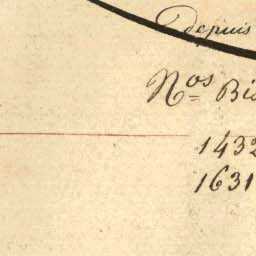 depuis
Nos Bis
1432
1631